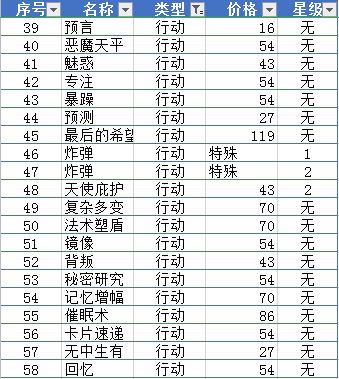 序号 名称 类型 价格 星级
39 预言 行动 16 无
40 恶魔天平 行动 54 无
41 魅惑 行动 43 无
42 专注 行动 54 无
43 暴躁 行动 54 无
44 预测 行动 27 无
45 最后的希望 行动 119 无
46 炸弹 行动 特殊 1
47 炸弹 行动 特殊 2
48 天使庇护 行动 43 2
49 复杂多变 行动 70 无
50 法术塑盾 行动 70 无
51 镜像 行动 54 无
52 背叛 行动 43 无
53 秘密研究 行动 54 无
54 记忆增幅 行动 70 无
55 催眠术 行动 86 无
56 卡片速递 行动 54 无
57 无中生有 行动 27 无
58 回忆 行动 54 无